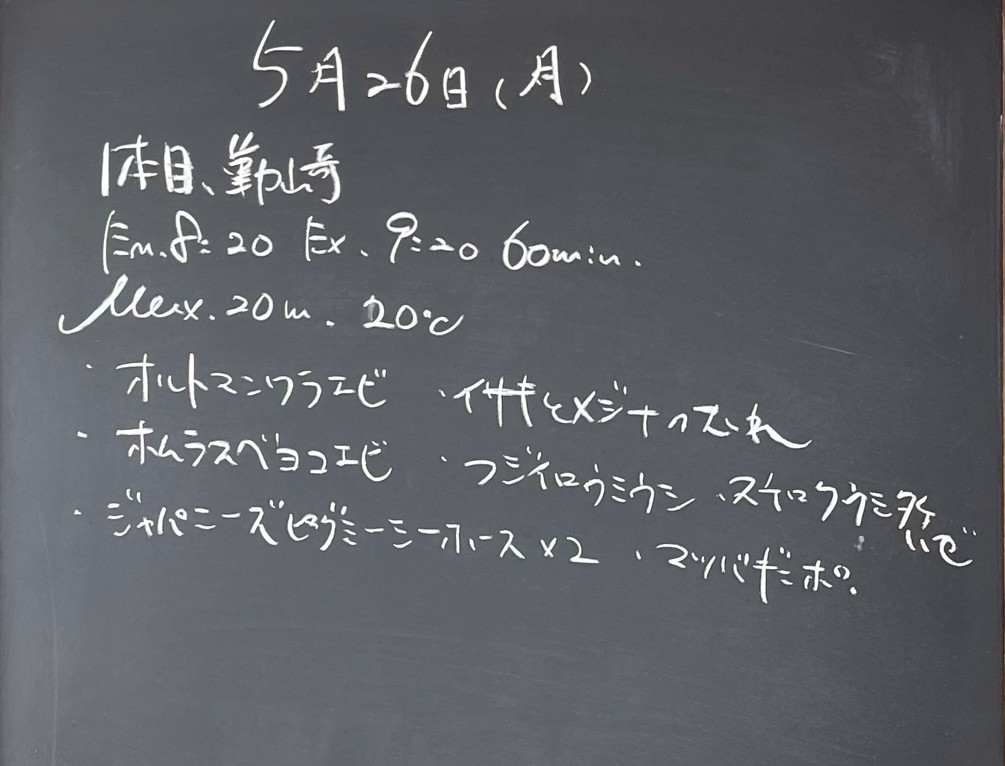 5月26日(月)
1本目、勤崎
En.8:20 Ex.9:20 60min.
Max.20m. 20℃
・オルトマンワラエビ ・イサキとメジナの大むれ
・ホムラスベヨコエビ ・フジイロウミウシ
・ジャパニーズピグミーシーホース×2 ・マツバギンポ